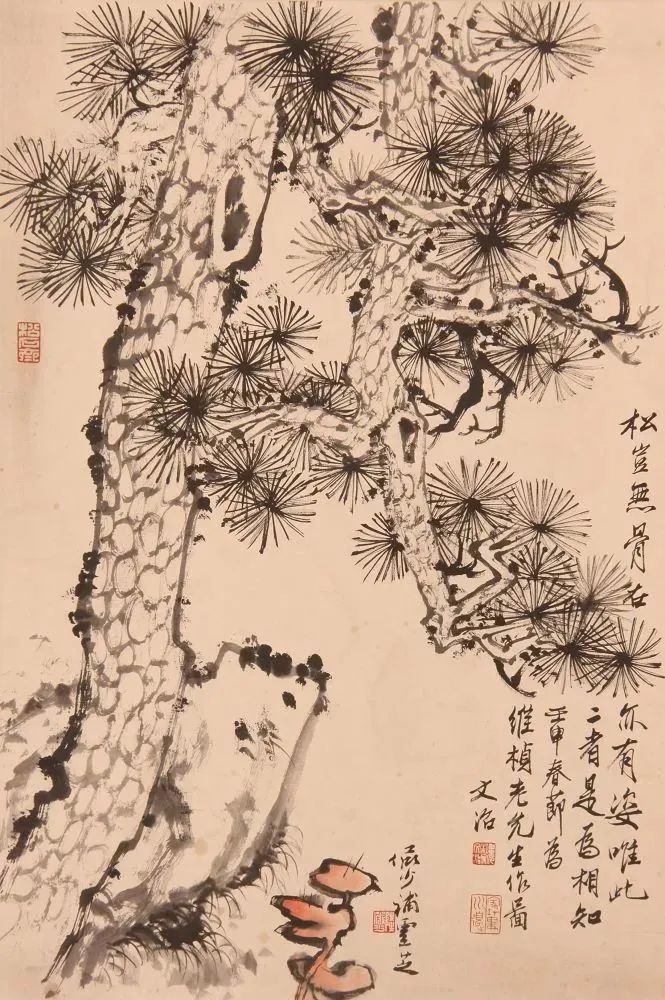 松岂無骨石
亦有姿唯此
二者是為相知
壬申春節為
維楨老先生作圖
文治
補靈芝